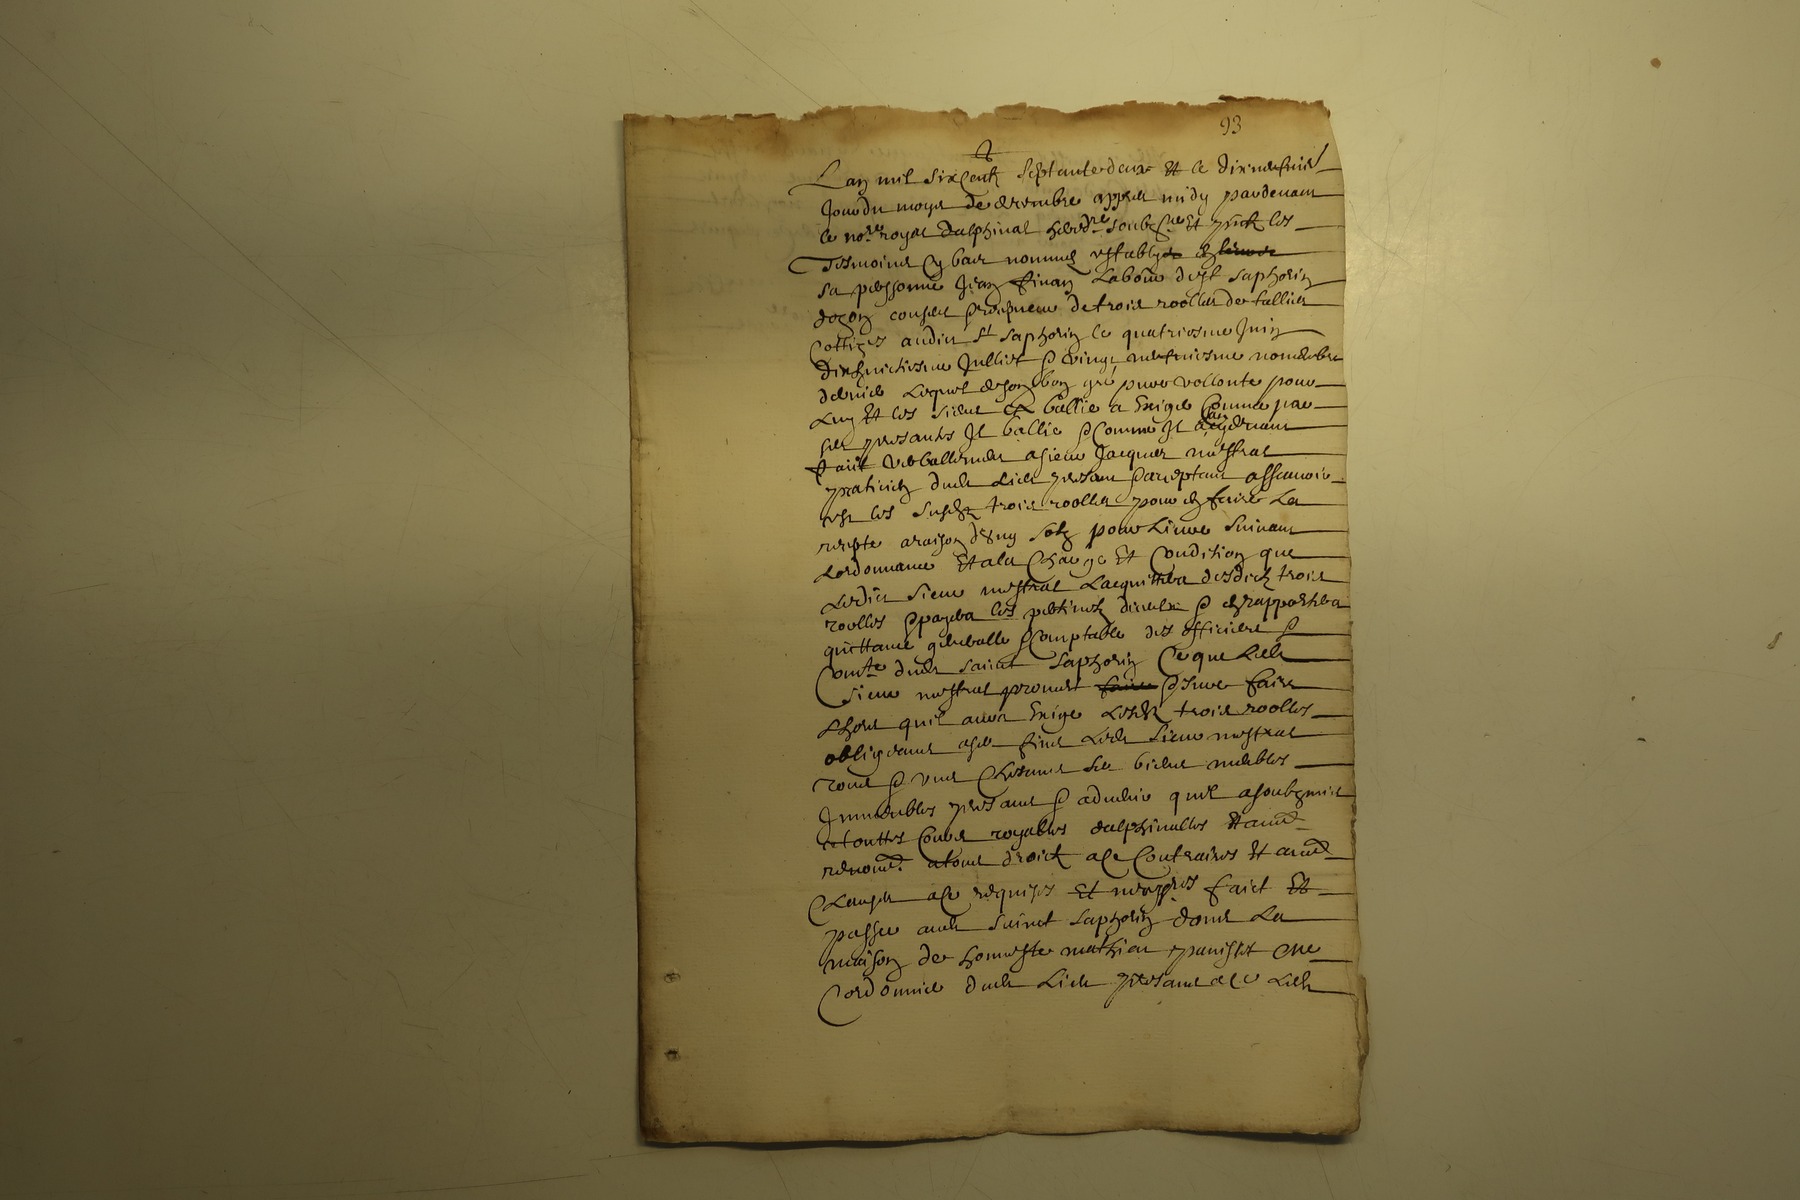 93
Lan mil six centz septante deux et le dixneufvies
Jour du moys de decembre appres midy pardevant
le no.re royal dalphinal hered.re soubz.né et prntz les
tesmoings cy bas nommes estably en
sa personne Jean Labour de st saphorin
dozon consul de trois roolles de tallies
Cottizes audict st saphorin le quatriesme Juin
dixhuictiesme Juilliet & vingt neufviesme novembre
dernier Lequel de son bon gré pure vollonte pour
Luy et les siens a ballie a Exiger Comme par
ses presantes Il ballie & Comme Il a cy devant
faict verballement a sieur Jacques mistral
praticien dudt Lieu presant & acceptant assavoir
est les susdtz trois roolles pour en faire La
recepte a raison d'ung solz pour Livre suivant
Lordonnance et a la Charge et Condition que
Ledict sieur mistral Lacquittera desdictz trois
roolles & payera les & en rapportera
quittance generalle & Comptable des officiers &
Com.te dudt sainct saphorin Ce que Ledt
sieur mistral promet faire
Lhors quil aura Exige Lesdtz trois roolles
obligeant a ses fins Ledt sieur mistral
tous & ungs Chescuns ses biens meubles
Immeubles presans & advenir quil a soubzmis
a touttes Cours royalles dalphinalles et aues
renonc.t a tous droictz a ce Contraires et aues
Clauses a ce requises et necess.res faict et
passe audt sainct saphorin dans La
maison de honneste mathieu panisset me
Cordonnier dudt Lieu presans a ce Ledt